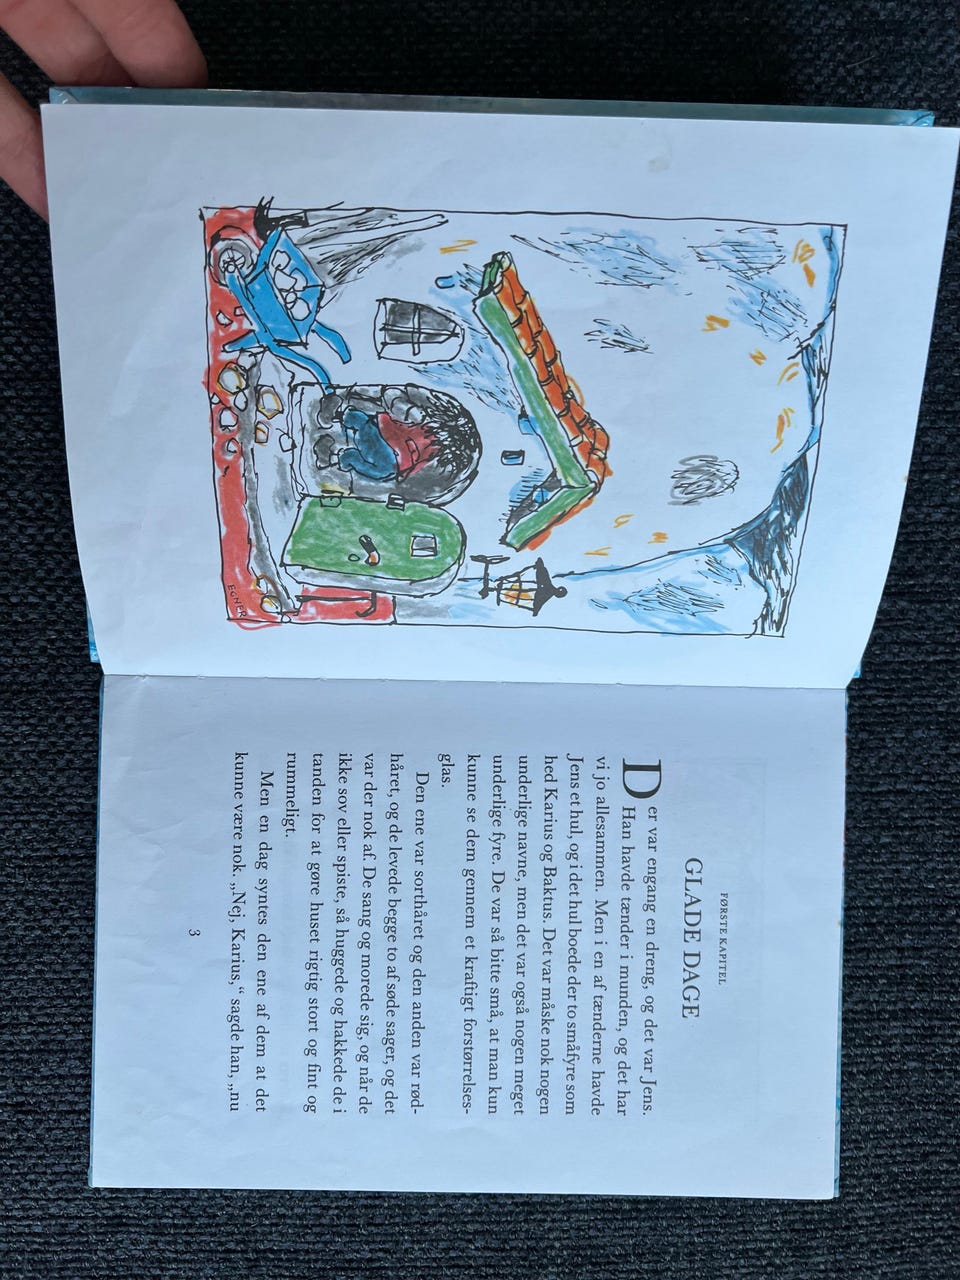 EGNER
FØRSTE KAPITEL
GLADE DAGE
Der var engang en dreng, og det var Jens.
Han havde tænder i munden, og det har
vi jo allesammen. Men i en af tænderne havde
Jens et hul, og i det hul boede der to småfyre som
hed Karius og Baktus. Det var måske nok nogen
underlige navne, men det var også nogen meget
underlige fyre. De var så bitte små, at man kun
kunne se dem gennem et kraftigt forstørrelses-
glas.
Den ene var sorthåret og den anden var rød-
håret, og de levede begge to af søde sager, og det
var der nok af. De sang og morede sig, og når de
ikke sov eller spiste, så huggede og hakkede de i
tanden for at gøre huset rigtig stort og fint og
rummeligt.
Men en dag syntes den ene af dem at det
kunne være nok. „Nej, Karius,“ sagde han, „nu
3